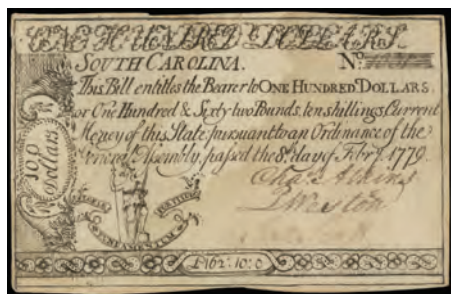 ONE HUNDRED DOLLARS.
SOUTH CAROLINA. Nº
This Bill entitles the Bearer to ONE HUNDRED DOLLARS.
or One Hundred & Sixty two Pounds, ten shillings, Current
Money of this State pursuant to an Ordinance of the
General Assembly, passed the 8th day of Febry 1779.
100
Dollars
Chas. Atkins
PER TITUM
FUNDAMENTUM
J Weston
£162:10:0